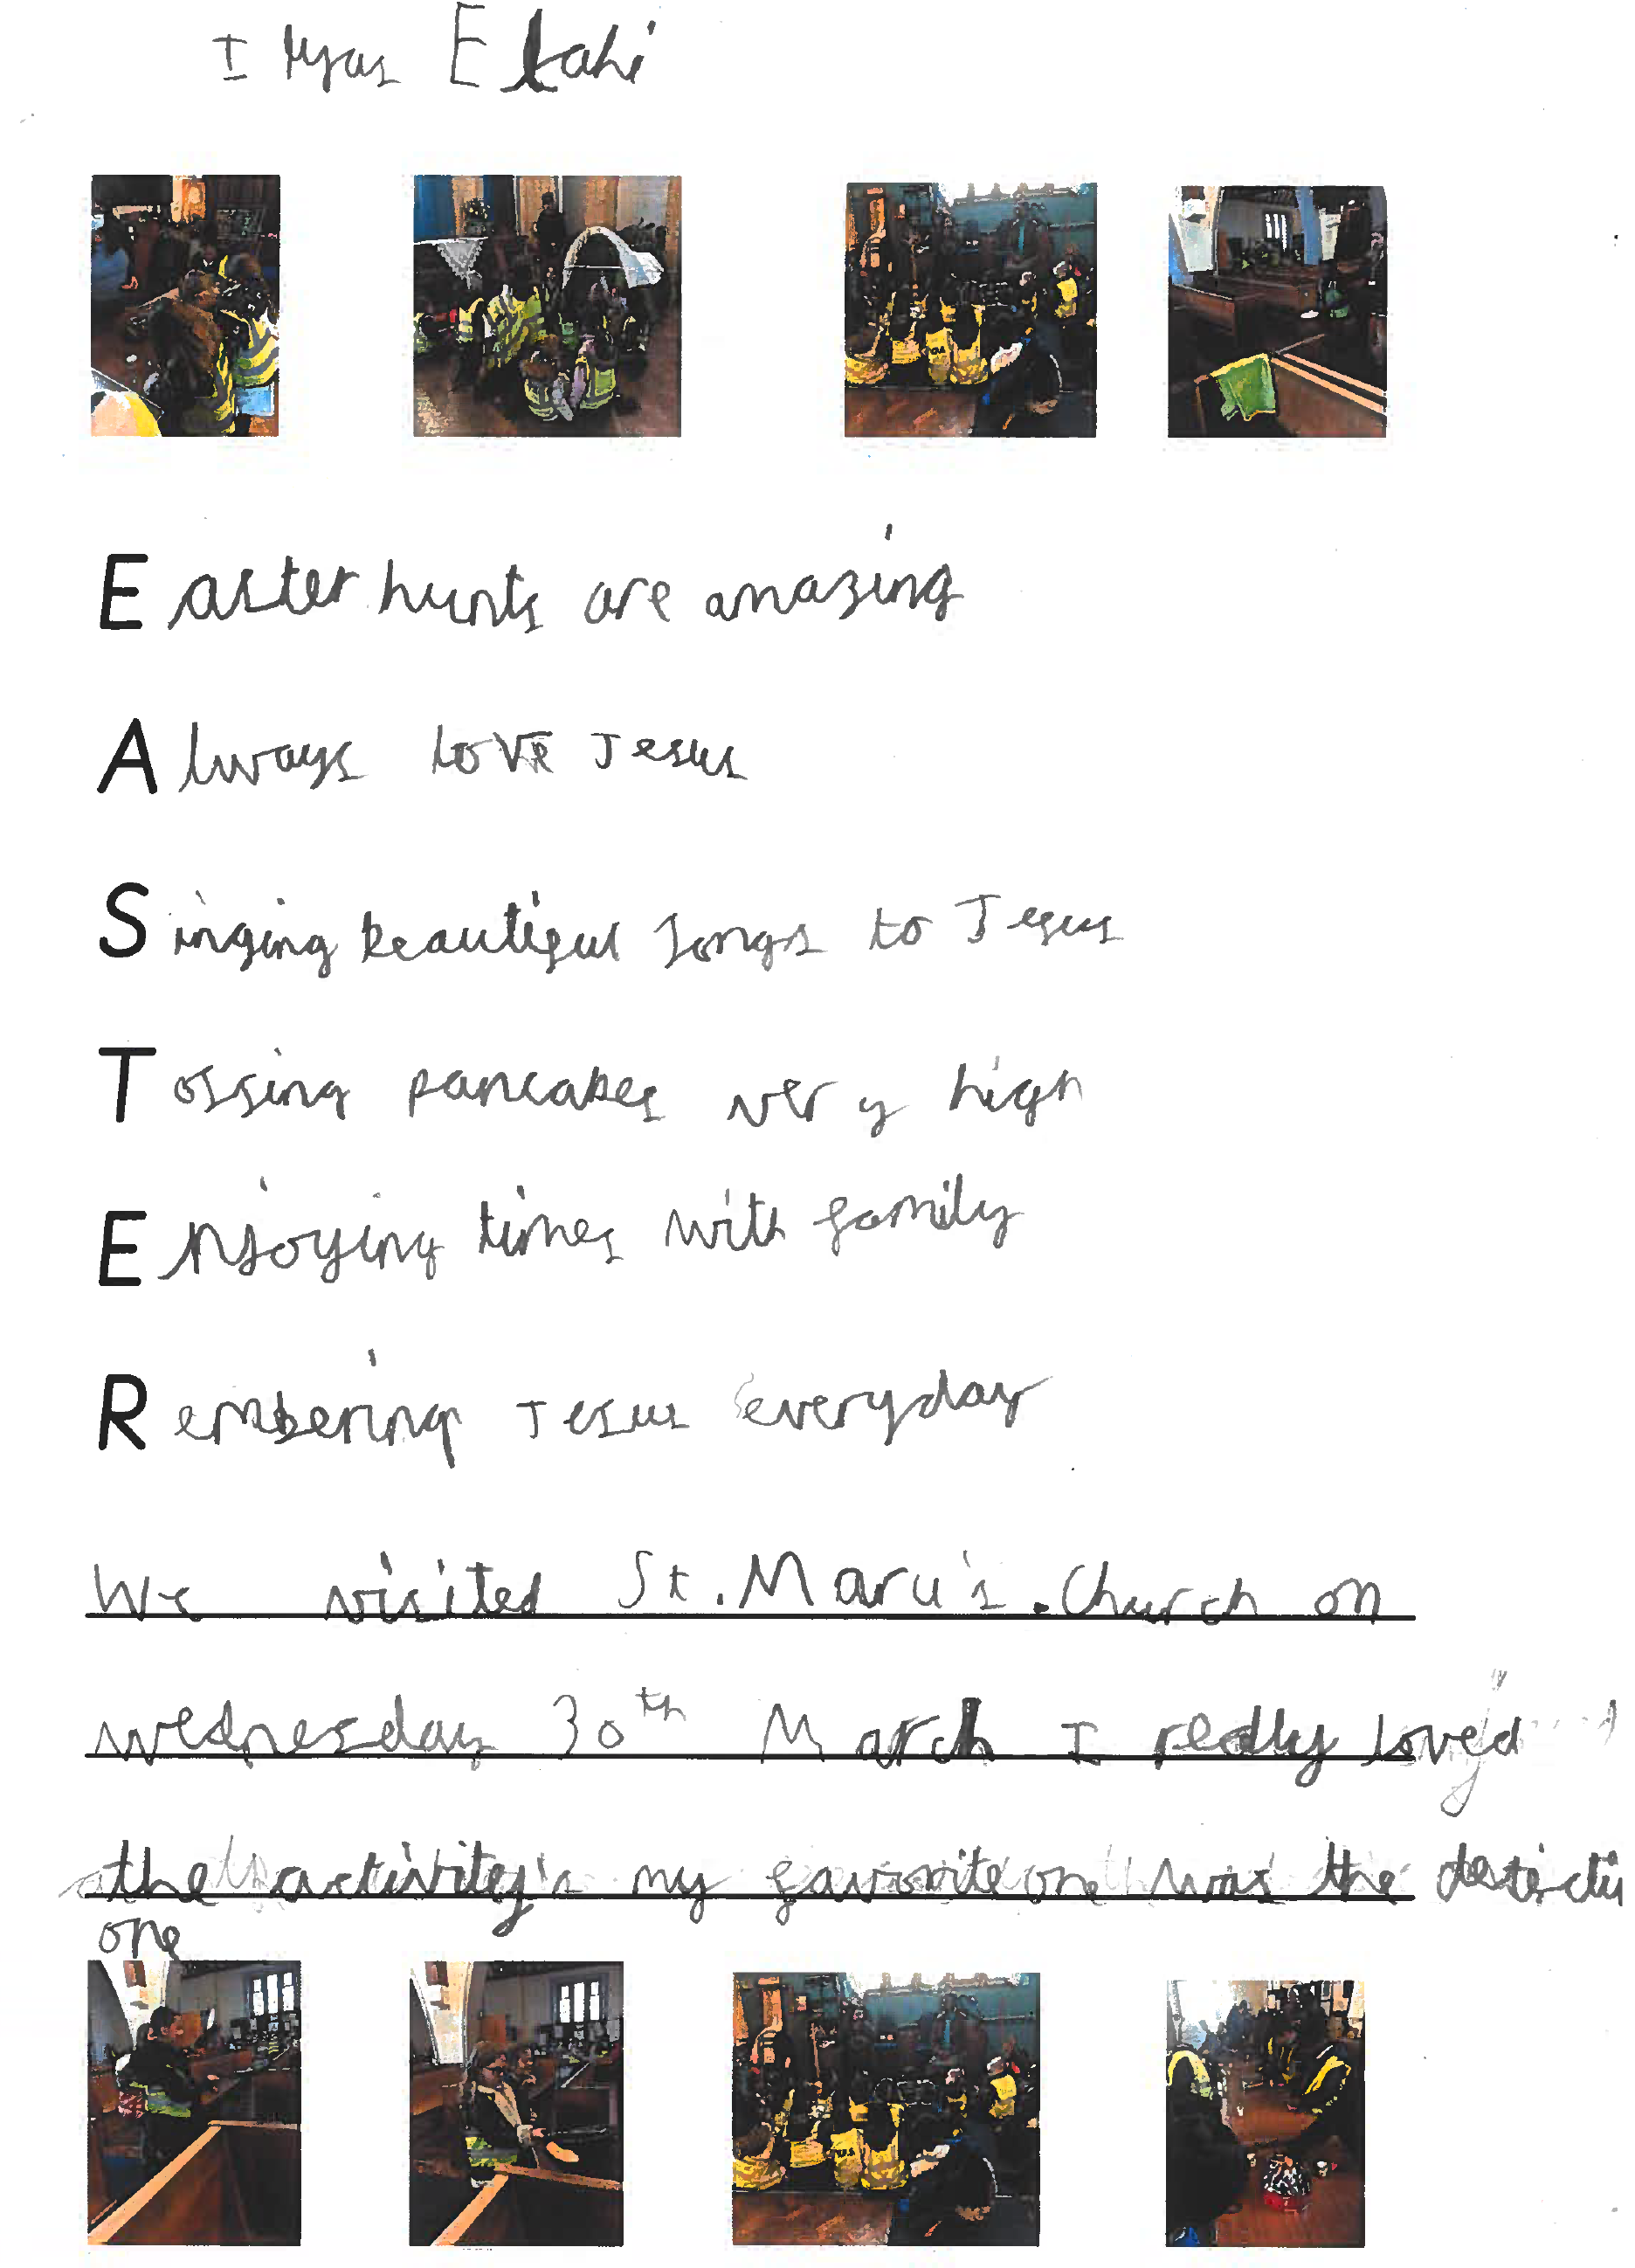 Ilyas Elahi
Easter hunts are amazing
Always love Jesus
Singing beautiful songs to Jesus
Tossing pancakes very high
Enjoying times with family
Rembering Jesus everyday
We visited St. Mary's. Church on
wednesday 30th March I really loved
the activitey's my favorite one was the
one